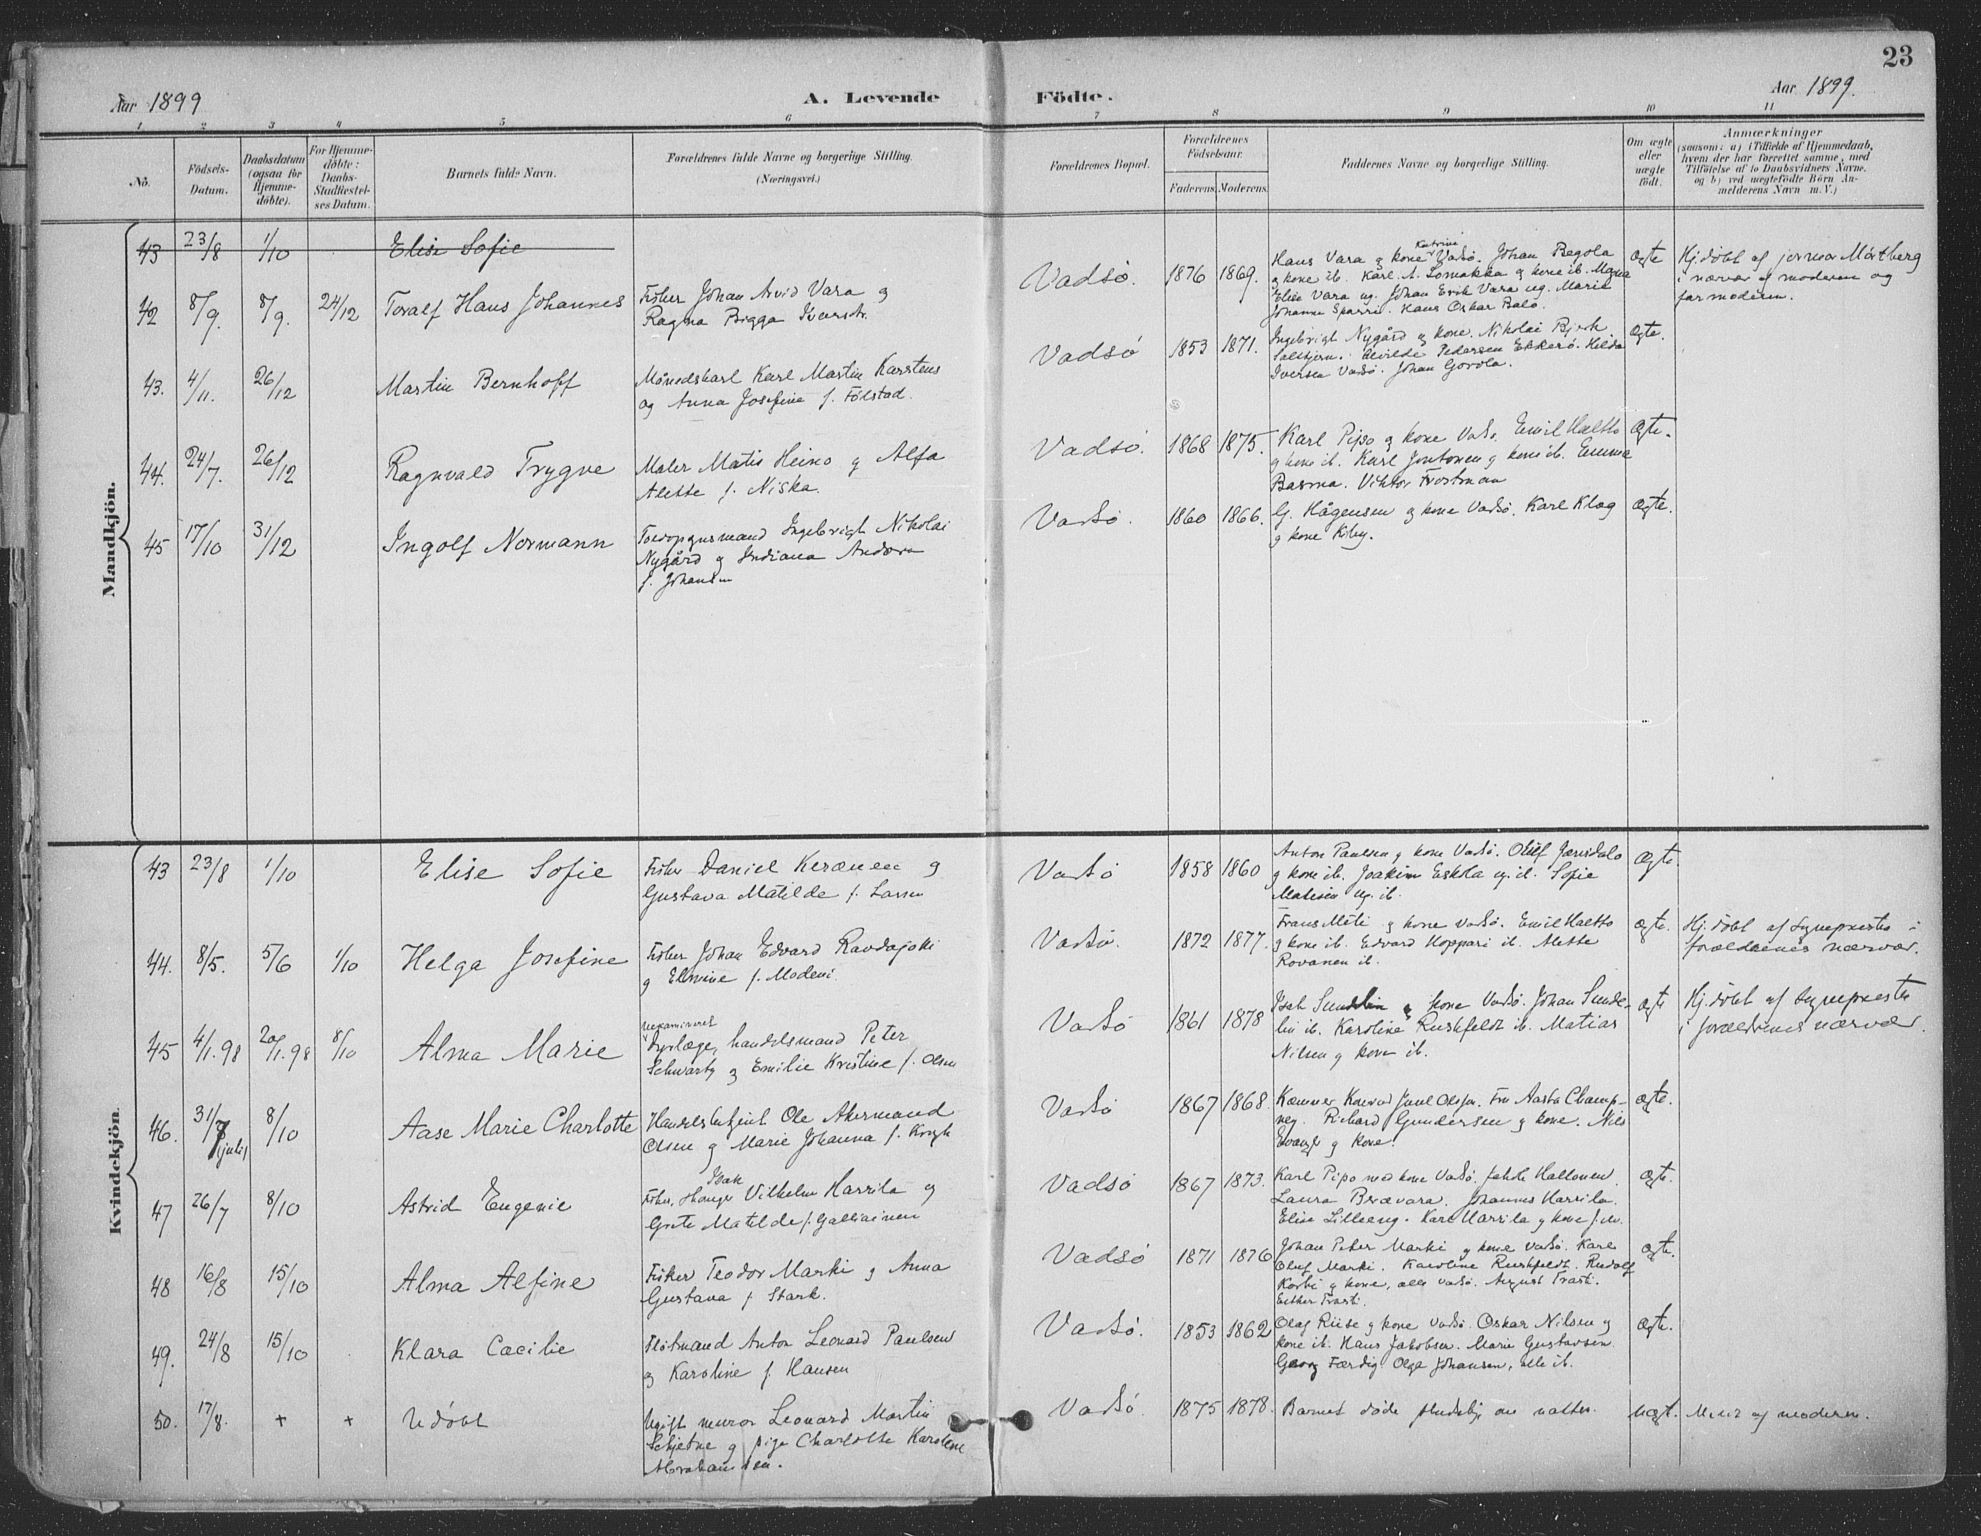 23
Aar 1899
A. Levende
Födte.
Aar 1899.
1 2 3 4 5 6 7 8 9 10 11
No.
Födsels-
Datum.
Daabsdatum
(ogsaa for
Hjemme-
döbte).
For Hjemme-
döbte:
Daabs-
Stadfæstel-
ses Datum.
Barnets fulde Navn.
Forældrenes fulde Navne og borgerlige Stilling.
(Næringsvei.)
Forældrenes Bopæl.
Forældrenes
Födselsaar.
Faderens. Moderens.
Faddernes Navne og borgerlige Stilling.
Om ægte
eller
uægte
födt.
Anmærkninger
(saasom: a) i Tilfælde af Hjemmedaab,
hvem der har forrettet samme, med
Tilföielse af to Daabsvidners Navne,
og b) ved uægtefödte Börn An-
melderens Navn m. V.)
Mandkjön.
43 23/8 1/10 Elise Sofie
42 8/9. 8/9. 24/12 Toralf Hans Johannes
Fisker Johan Arvid Vara og
Ragna Brigga Iversdr.
Vadsö. 1876 1869.
Hans Vara og kone Katrine Vadsö. Johan Begola
og kone ib. Karl A. Lomakka og kone ib. Maria
Elise Vara ug. Johan Erik Vara ug. Marie
Johanne Sparre. Hans Oskar Palo.
Ægte
Hj.döbt af jormor Mörtberg
i nærvær af moderen og
farmoderen.
43. 4/11. 26/12 Martin Bernhoff
Månedskarl Karl Martin Karstens
og Anna Josefine f. Fölstad.
Vadsö 1853 1871.
Ingebrigt Nygård og kone. Nikolai Bjerk
Saltbjern. Alvilde Pedersen Ekkerö. Hilda
Iversen Vadsö. Johan Gorola.
Ægte.
44. 24/7. 26/12 Ragnvald Trygve
Maler Matis Heino og Alfa
Alette f. Niska.
Vadsö. 1868 1875.
Karl Pipo og kone Vadsö. Emil Haltto
og kone ib. Karl Jontonen og kone ib. Emma
Basma. Viktor Frostman
Ægte.
45 17/10 31/12 Ingolf Normann
Toldopsynsmand Ingebrigt Nikolai
Nygård og Indiana Andora
f. Johansen
Vadsö. 1860 1866.
G. Hågensen og kone Vadsö. Karl Klag
og kone Kiby.
Ægte.
Kvindekjön.
43 23/8 1/10 Elise Sofie
Fisker Daniel Keränen og
Gustava Matilde f. Larsen
Vadsö 1858 1860
Anton Paulsen og kone Vadsö. Oluf Jærisdalo
og kone ib. Joakim Eskola ug. ib. Sofie
Matisen ug. ib.
Ægte.
44. 8/5. 5/6 1/10 Helga Josefine
Fisker Johan Edvard Raudajoki
og Elmine f. Modeni.
Vadsö. 1872 1877.
Frans Meti og kone Vadsö. Emil Haltto
og kone ib. Edvard Koppari ib. Mette
Rovanen ib.
Ægte.
Hj.döbt af Sognepresten i
forældrenes nærvær.
45 4/1.98 20/1.98 8/10 Alma Marie
uexamineret
Dyrlæge, handelsmand Peter
Schwartz og Emilie Kristine f. Olsen
Vadsö 1861 1878
Isak Sundelin og kone Vadsö. Johan Sunde-
lin ib. Karoline Rushfeldt ib. Matias
Nilsen og kone ib.
Ægte
Hj.döbt af Sognepresten
i forældrenes nærvær.
46. 31/7 (juli) 8/10 Aase Marie Charlotte
Handelsbetjent Ole Akermand
Olsen og Marie Johanna f. Krogh
Vadsö 1867 1868.
Kæmner Konrad Juul Olsen. Fru Aasta Champ-
ney. Richard Gundersen og kone. Nils
og kone.
Ægte.
47 26/7 8/10 Astrid Eugenie
Isak
Fisker, Vilhelm Harrila og
Grete Matilde f. Galliainen
Vadsö 1867 1873.
Karl Pipo med kone Vadsö. Hallonen.
Laura Brævara. Johannes Harrila.
Elise Lilleeng. Karl Harrila og kone
Ægte.
48 16/8 15/10 Alma Alfine
Fisker Teodor Marki og Anna
Gustava f. Stark.
Vadsö 1871 1876
Johan Peter Marki og kone Vadsö. Karl
Oluf Marki. Karoline Rushfeldt. Rudolf
Korbi og kone, alle Vadsö. August Trasti.
Esther Trasti.
Ægte.
49. 24/8 15/10 Klara Cacilie
Flötmand Anton Leonard Paulsen
og Karoline f. Hansen
Vadsö. 1853 1862
Olaf Riise og kone Vadsö. Oskar Nilsen og
kone ib. Hans Jakobsen. Marie Gustavsen
Georg Færdig. Olga Johansen, alle ib.
Ægte.
50. 17/8. + + Udöbt
Ugift murer Leonard Martin
Schjetne og pige Charlotte Karoline
Abrahamsen.
Vadsö. 1875 1878.
Barnet döde pludselig om natten.
uægt.
Meldt af moderen.